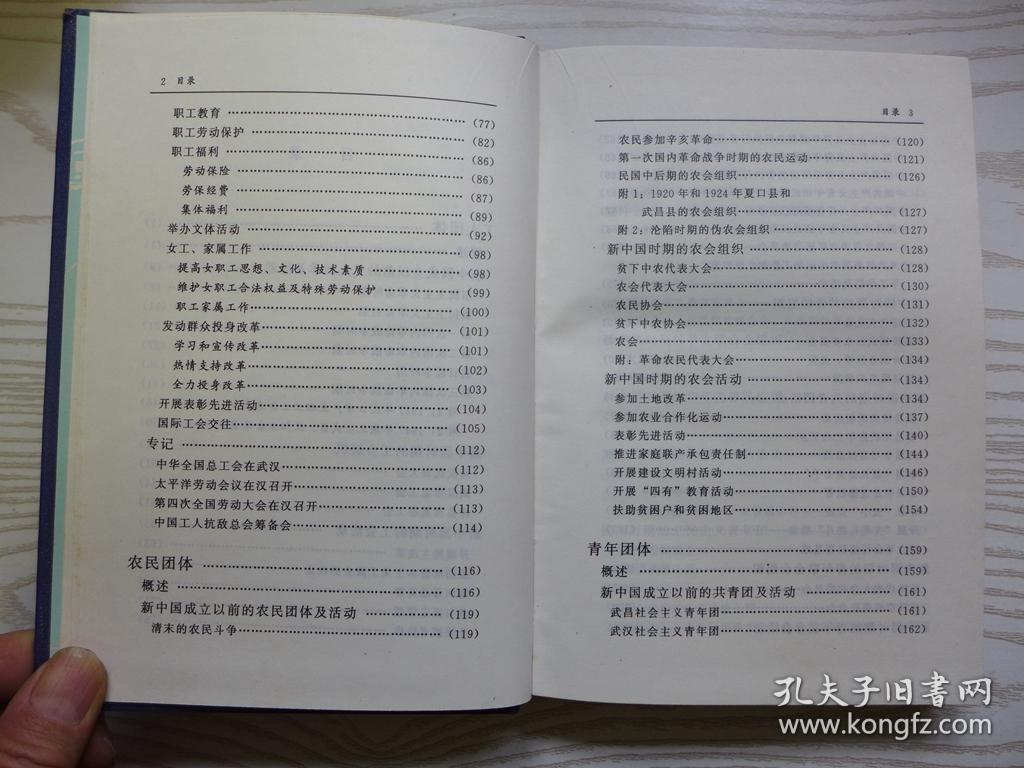 2 目录
职工教育 ……………………………………… (77)
职工劳动保护 ……………………………………… (82)
职工福利 ……………………………………… (86)
劳动保险 ……………………………………… (86)
劳保经费 ……………………………………… (87)
集体福利 ……………………………………… (89)
举办文体活动 ……………………………………… (92)
女工、家属工作 ……………………………………… (98)
提高女职工思想、文化、技术素质 ……………………… (98)
维护女职工合法权益及特殊劳动保护 ……………………… (99)
职工家属工作 ……………………………………… (100)
发动群众投身改革 ……………………………………… (101)
学习和宣传改革 ……………………………………… (101)
热情支持改革 ……………………………………… (102)
全力投身改革 ……………………………………… (103)
开展表彰先进活动 ……………………………………… (104)
国际工会交往 ……………………………………… (105)
专记 ……………………………………… (112)
中华全国总工会在武汉 ……………………………………… (112)
太平洋劳动会议在汉召开 ……………………………………… (113)
第四次全国劳动大会在汉召开 ……………………………… (113)
中国工人抗敌总会筹备会 ……………………………………… (114)
农民团体 ……………………………………… (116)
概述 ……………………………………… (116)
新中国成立以前的农民团体及活动 ……………………… (119)
清末的农民斗争 ……………………………………… (119)
目录 3
农民参加辛亥革命 ……………………………………… (120)
第一次国内革命战争时期的农民运动 ……………………… (121)
民国中后期的农会组织 ……………………………………… (126)
附1：1920年和1924年夏口县和
武昌县的农会组织 ……………………………………… (127)
附2：沦陷时期的伪农会组织 ……………………………… (127)
新中国时期的农会组织 ……………………………………… (128)
贫下中农代表大会 ……………………………………… (128)
农会代表大会 ……………………………………… (130)
农民协会 ……………………………………… (131)
贫下中农协会 ……………………………………… (132)
农会 ……………………………………… (133)
附：革命农民代表大会 ……………………………………… (134)
新中国时期的农会活动 ……………………………………… (134)
参加土地改革 ……………………………………… (134)
参加农业合作化运动 ……………………………………… (137)
表彰先进活动 ……………………………………… (140)
推进家庭联产承包责任制 ……………………………………… (144)
开展建设文明村活动 ……………………………………… (146)
开展“四有”教育活动 ……………………………………… (150)
扶助贫困户和贫困地区 ……………………………………… (154)
青年团体 ……………………………………… (159)
概述 ……………………………………… (159)
新中国成立以前的共青团及活动 ……………………… (161)
武昌社会主义青年团 ……………………………………… (161)
武汉社会主义青年团 ……………………………………… (162)
孔夫子旧书网
www.kongfz.com